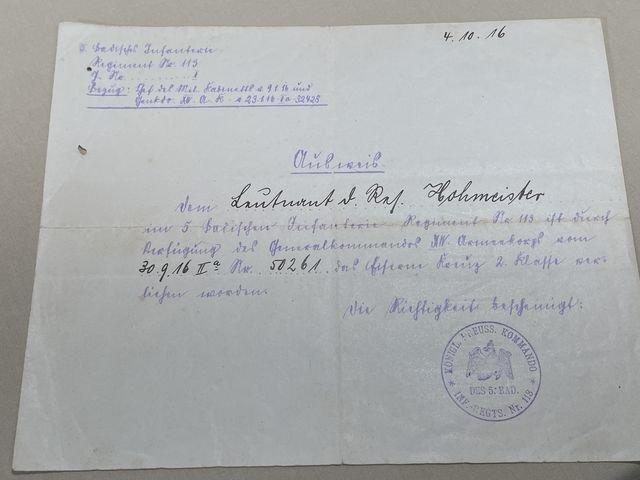 4.10.16
5. Badisches Infanterie-
Regiment Nr. 113
J. Nr. ........... I
Bezug: Chef des Mil. Kabinetts v. 9.1.16 und
Genkdo. A. K. v. 23.1.16 IIa 32425
Ausweis.
Dem Leutnant d. Res. Hohmeister
im 5. Badischen Infanterie-Regiment Nr 113 ist durch
Verfügung des Generalkommandos Armeekorps vom
30.9.16 IIa Nr. 50261 das Eiserne Kreuz 2. Klasse ver-
liehen worden.
Die Richtigkeit bescheinigt:
* KÖNIGL. PREUSS. KOMMANDO *
DES 5. BAD.
INF.-REGTS. Nr. 113